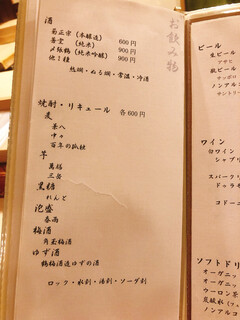 お飲み物
酒
菊正宗 (本醸造) 600円
善堂 (純米) 900円
〆張鶴 (純米吟醸) 900円
他1種
熱燗・ぬる燗・常温・冷酒
焼酎・リキュール 各600円
麦
兼八
中々
百年の孤独
芋
萬膳
三岳
黒糖
れんと
泡盛
春雨
梅酒
角玉梅酒
ゆず酒
鶴梅酒造ゆずの酒
ロック・水割・湯割・ソーダ割
ビール
生ビール
アサヒ
瓶ビール
サッポロ
ノンアル
サントリー
ワイン
白ワイン
シャブリ
スパークリ
ドゥラモ
コドー
ソフトドリ
オーガニッ
オーガニッ
ウーロン茶
炭酸水
ノンアルコ